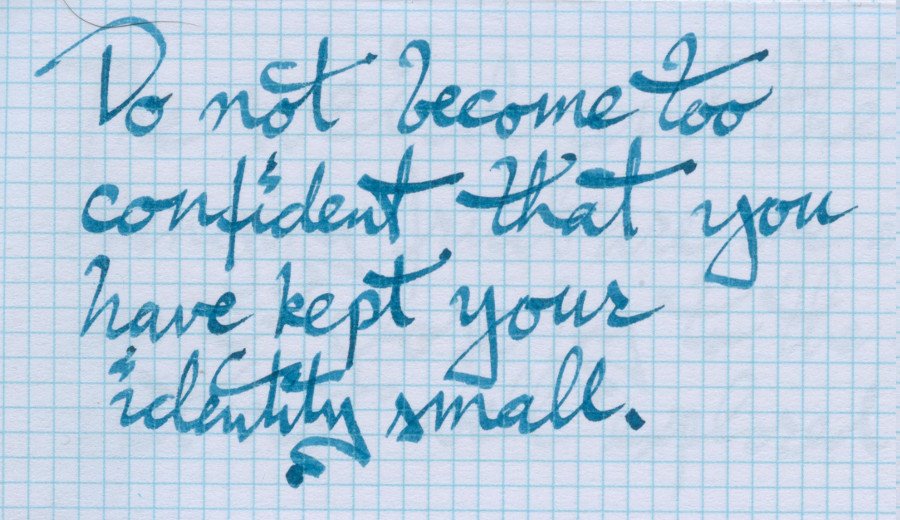 Do not become too
confident that you
have kept your
identity small.